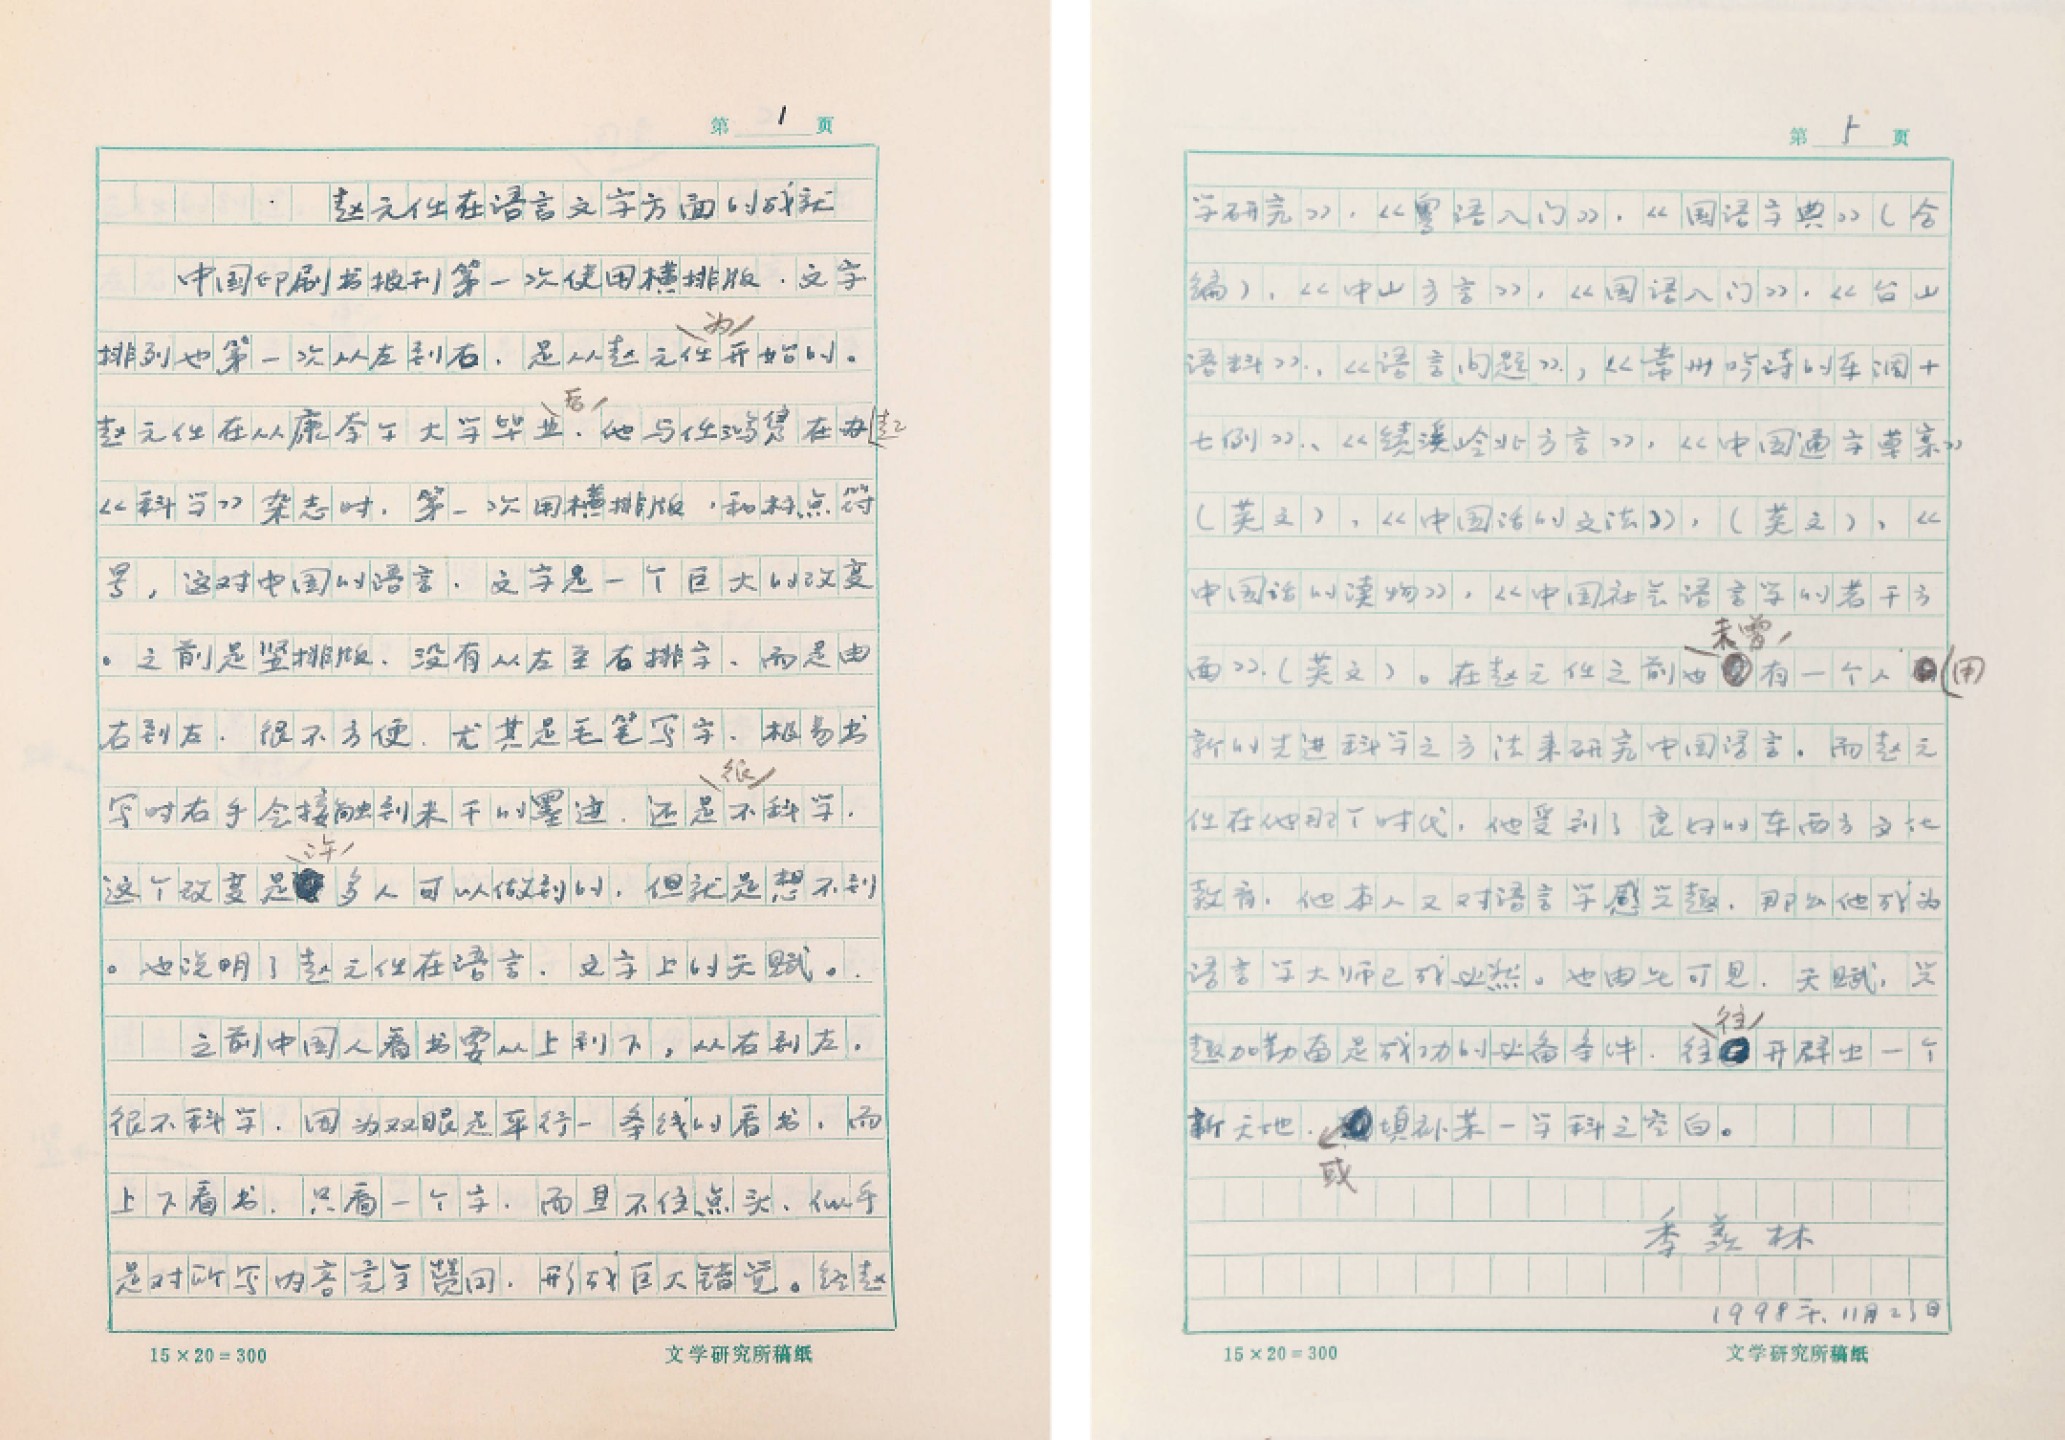 第1页
赵元任在语言文字方面的成就
中国印刷书报刊第一次使用横排版.文字
为
排列也第一次从左到右.是从赵元任开始的。
后
赵元任在从康奈尔大学毕业.他与任鸿隽在办起
《科学》杂志时.第一次用横排版,和标点符
号,这对中国的语言.文字是一个巨大的改变
。之前是竖排版.没有从左至右排字.而是由
右到左.很不方便.尤其是毛笔写字.极易书
很
写时右手会接触到未干的墨迹.还是不科学.
许
这个改变是多人可以做到的.但就是想不到
。也说明了赵元任在语言.文字上的天赋。
之前中国人看书要从上到下,从右到左.
很不科学.因为双眼是平行一条线的看书.而
上下看书.只看一个字.而且不住点头.似乎
是对所写内容完全赞同.形成巨大错觉。经赵
15×20=300 文学研究所稿纸
第5页
学研究》.《粤语入门》.《国语字典》(合
编).《中山方言》,《国语入门》.《台山
语料》.、《语言问题》.,《常州吟诗的乐调十
七例》.、《绩溪岭北方言》,《中国通字草案》
(英文),《中国话的文法》,(英文),《
中国话的读物》,《中国社会语言学的若干方
未曾
面》.(英文)。在赵元任之前也有一个人用
新的先进科学之方法来研究中国语言.而赵元
任在他那个时代.他受到了良好的东西方文化
教育.他本人又对语言学感兴趣.那么他成为
语言学大师已成必然。也由此可见.天赋,兴
往
趣加勤奋是成功的必备条件.往开辟出一个
新天地.填补某一学科之空白。
或
季羡林
1998年.11月23日
15×20=300 文学研究所稿纸